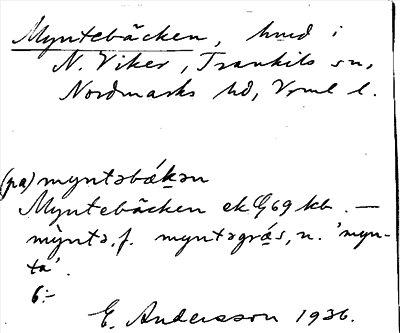 Myntebäcken, hmd i
N. Viker, Trankils sn,
Nordmarks hd, Vrml l.
(pa) myntəbækən
Myntebäcken ek G69 kb. —
mỳntə, f. myntəgræs, n. 'myn-
ta'.
6:-
E. Andersson 1936.